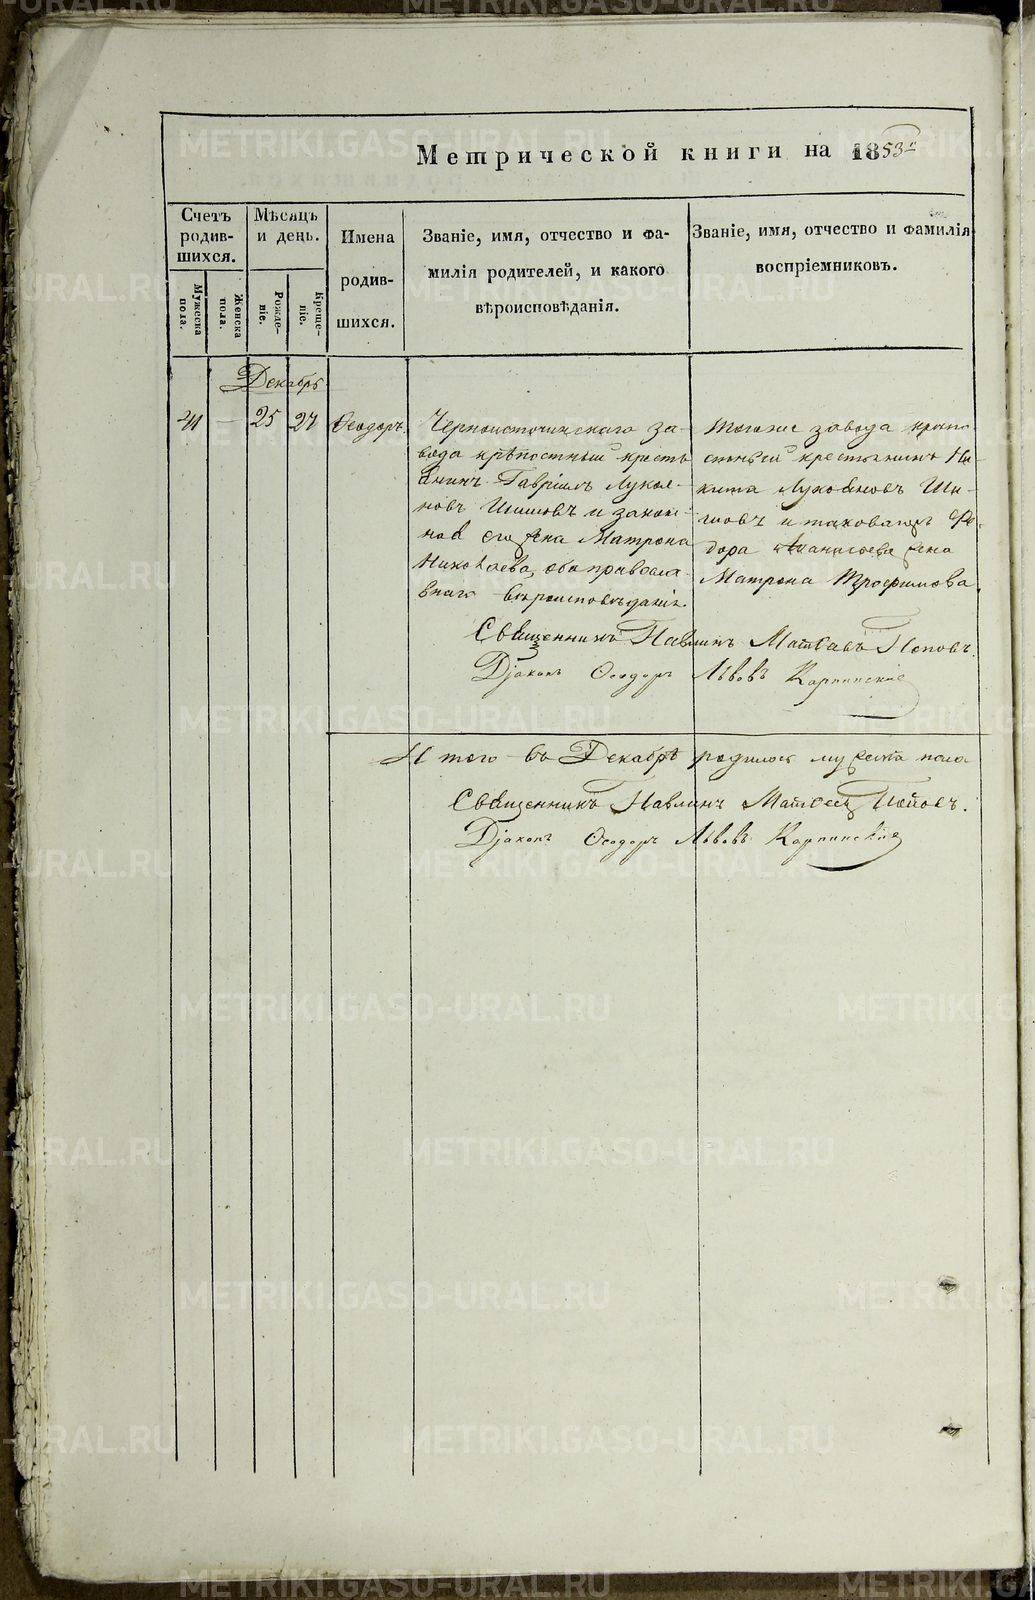 Метрической книги на 1853
Счетъ родив-шихся.
Мужеска пола.
Женска пола.
Мѣсяцъ и день.
Рожде-ніе.
Креще-ніе.
Имена
родив-
шихся.
Званіе, имя, отчество и фа-
милія родителей, и какого
вѣроисповѣданія.
Званіе, имя, отчество и фамилія
воспріемниковъ.
Декабрь
41 — 25 27 Ѳеодоръ.
Черноисточинскаго за-
вода крѣпостный кресть
янинъ Гавріилъ Лукоя-
новъ Шишовъ и закон-
ная его жена Матрона
Николаева, оба правосла-
внаго вѣроисповѣданія.
Тогоже завода крѣпо
стный крестьянинъ Ни-
кита Лукояновъ Ши-
шовъ и таковагожъ Ѳе-
дора жена
Матрона Трофимова.
Священникъ Павлинъ Матвѣевъ Поповъ.
Діаконъ Ѳеодоръ Львовъ Карпинскій
Итого въ Декабрѣ родилось мужеска пола
Священникъ Павлинъ Матвѣевъ Поповъ.
Діаконъ Ѳеодоръ Львовъ Карпинскій
METRIKI.GASO-URAL.RU